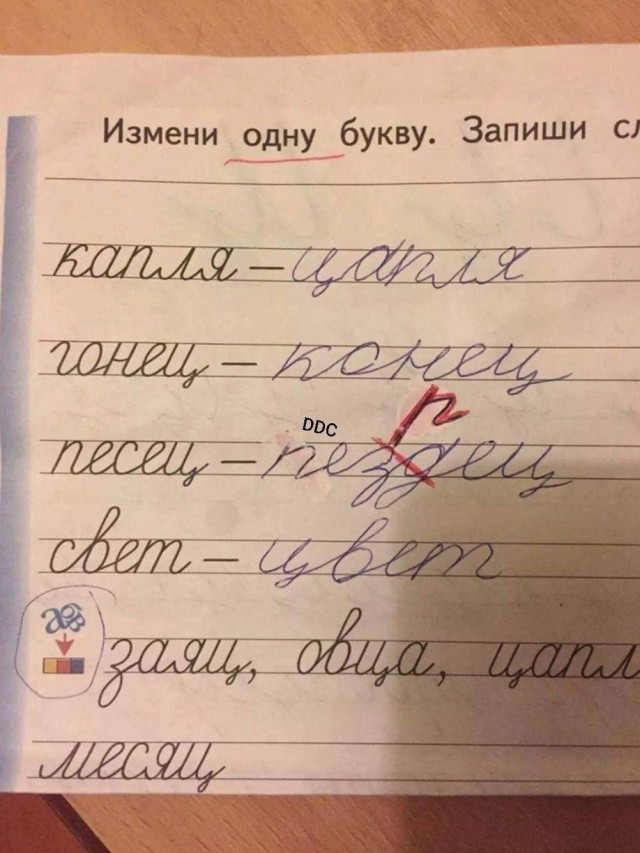 Измени одну букву. Запиши сл
капля – цапля
гонец – конец
DDC
р
песец – пездец
свет – цвет
абв
заяц, овца, цапл
месяц